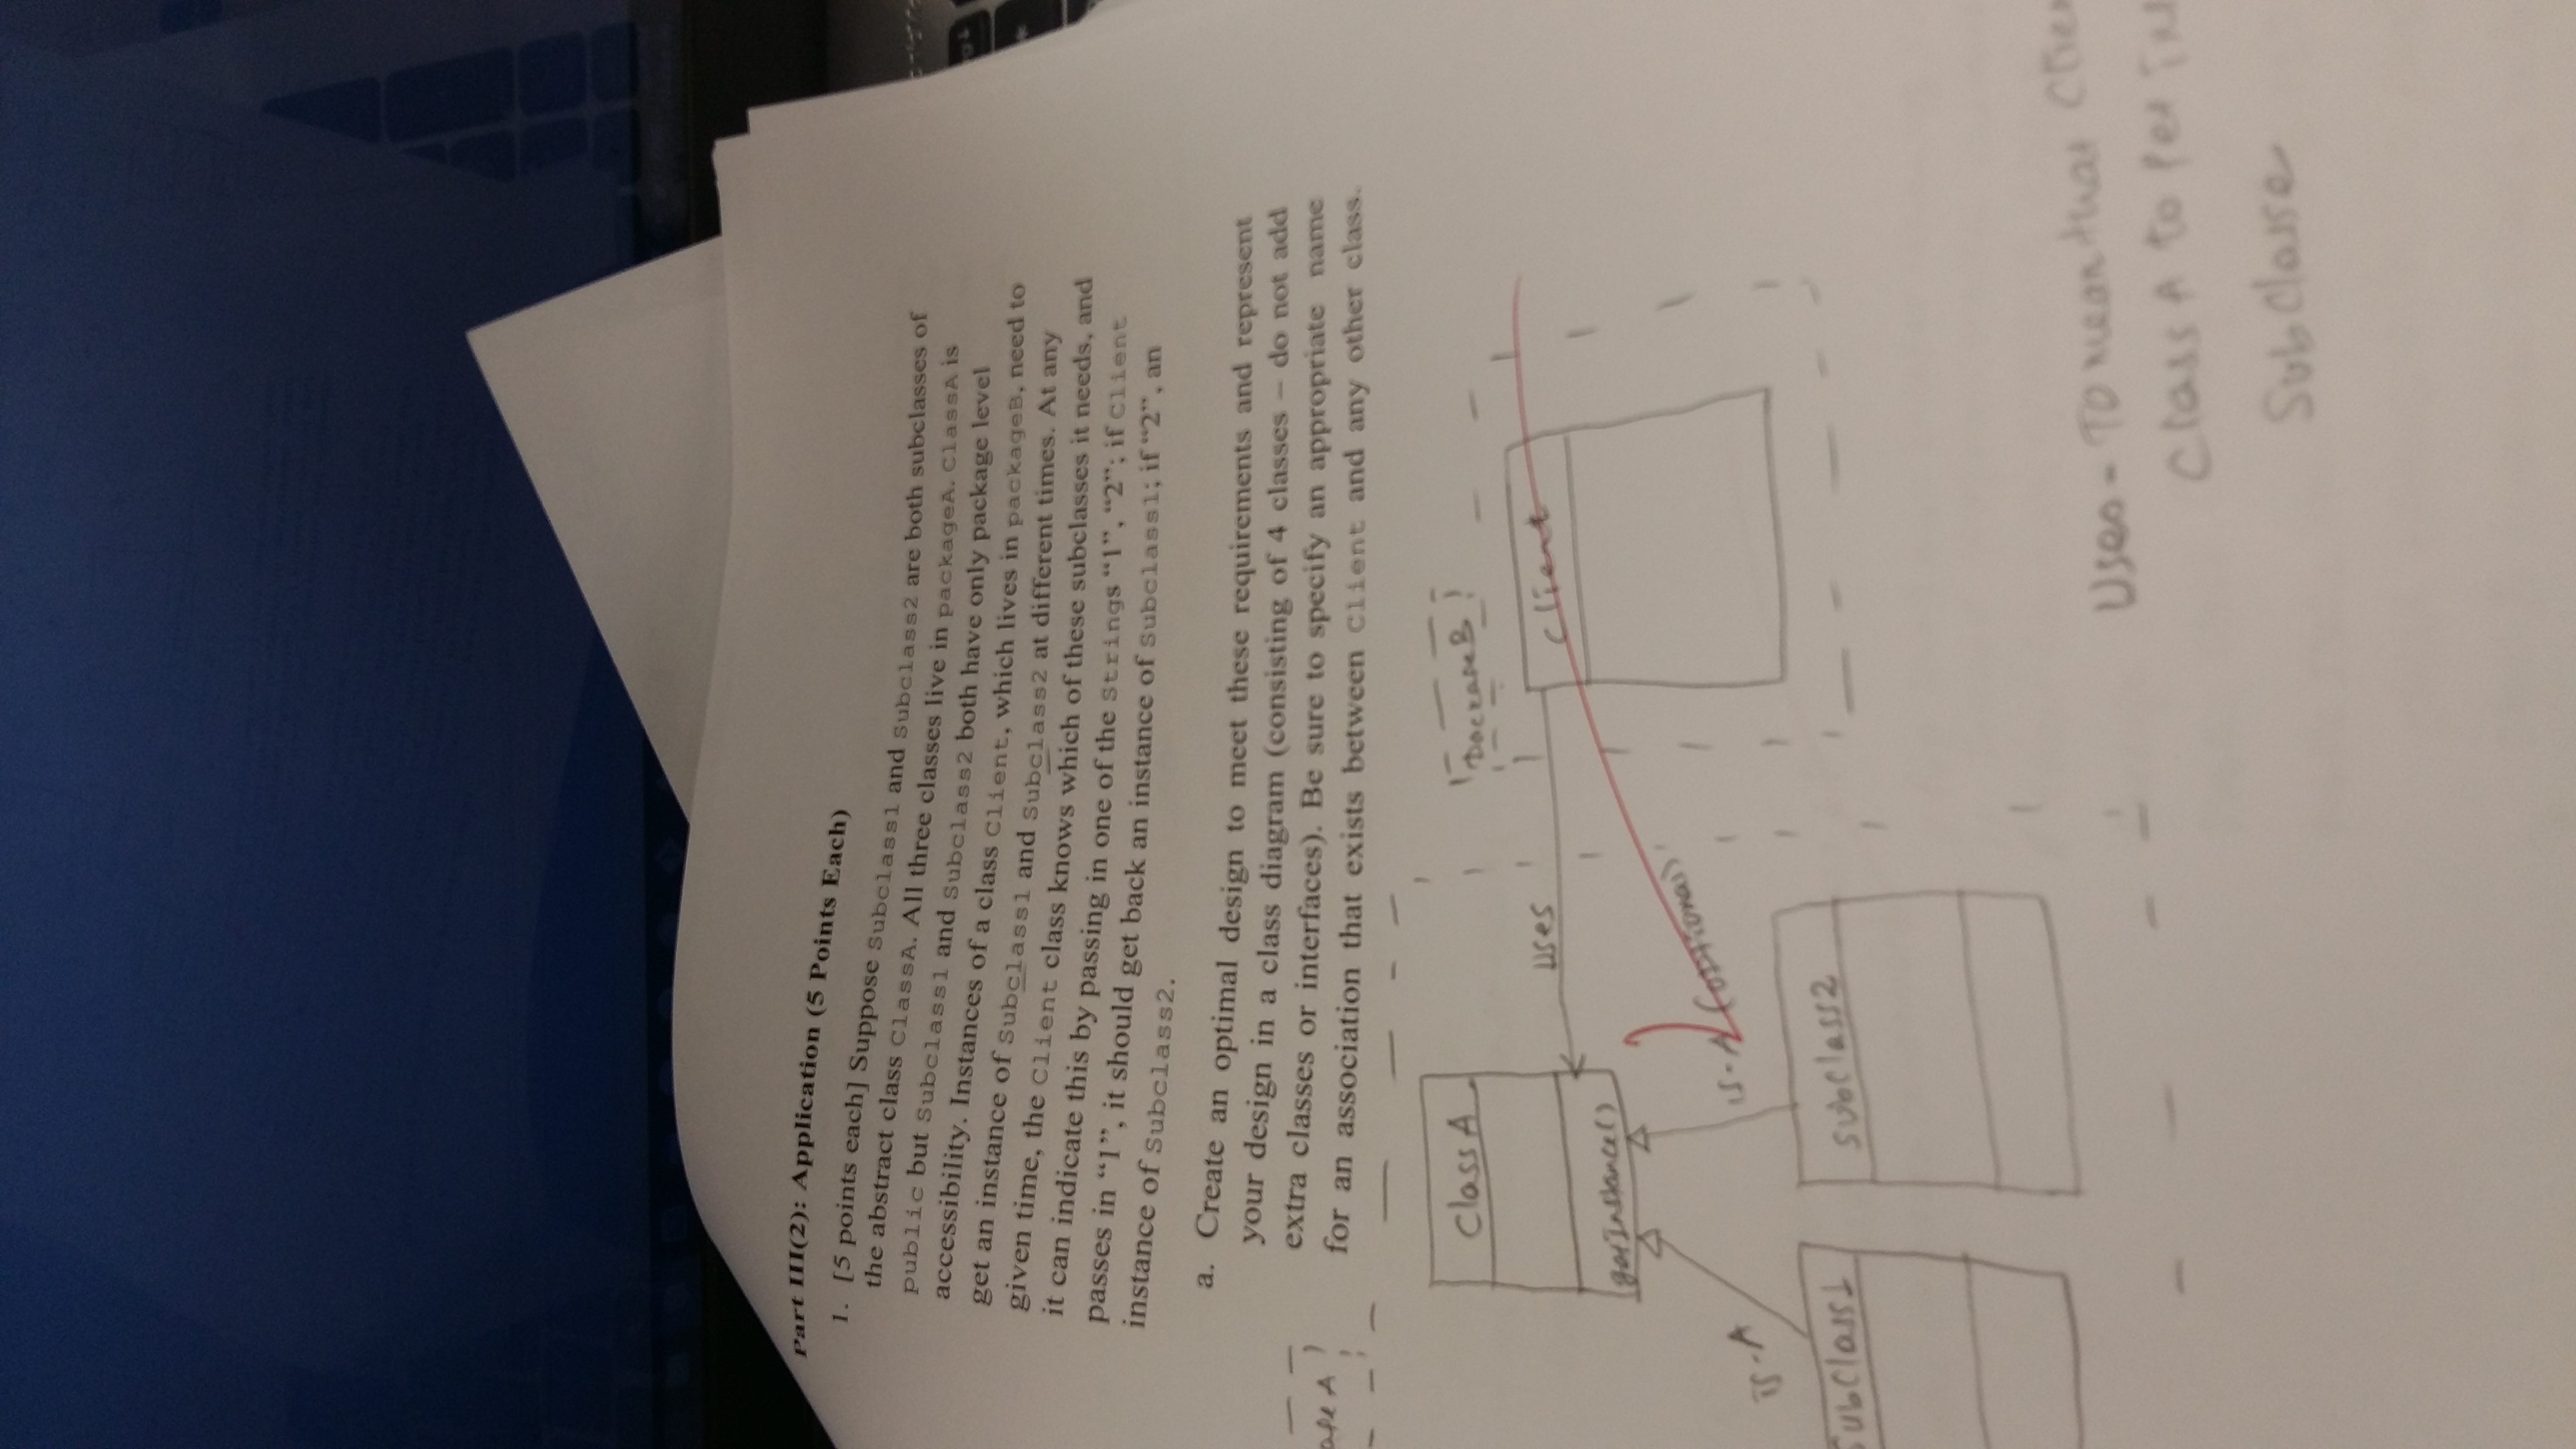 Part III(2): Application (5 Points Each)
1. [5 points each] Suppose Subclass1 and Subclass2 are both subclasses of
the abstract class ClassA. All three classes live in packageA. ClassA is
public but Subclass1 and Subclass2 both have only package level
accessibility. Instances of a class Client, which lives in packageB, need to
get an instance of Subclass1 and Subclass2 at different times. At any
given time, the Client class knows which of these subclasses it needs, and
it can indicate this by passing in one of the Strings “1”, “2”; if Client
passes in “1”, it should get back an instance of Subclass1; if “2”, an
instance of Subclass2.
a. Create an optimal design to meet these requirements and represent
your design in a class diagram (consisting of 4 classes – do not add
extra classes or interfaces). Be sure to specify an appropriate name
for an association that exists between Client and any other class.
A
ClassA
PackageB
uses
Client
getInstance()
is-A (optional)
is-A
SubClass1
SubClass2
Uses - To mean that
Class A to get
SubClasse